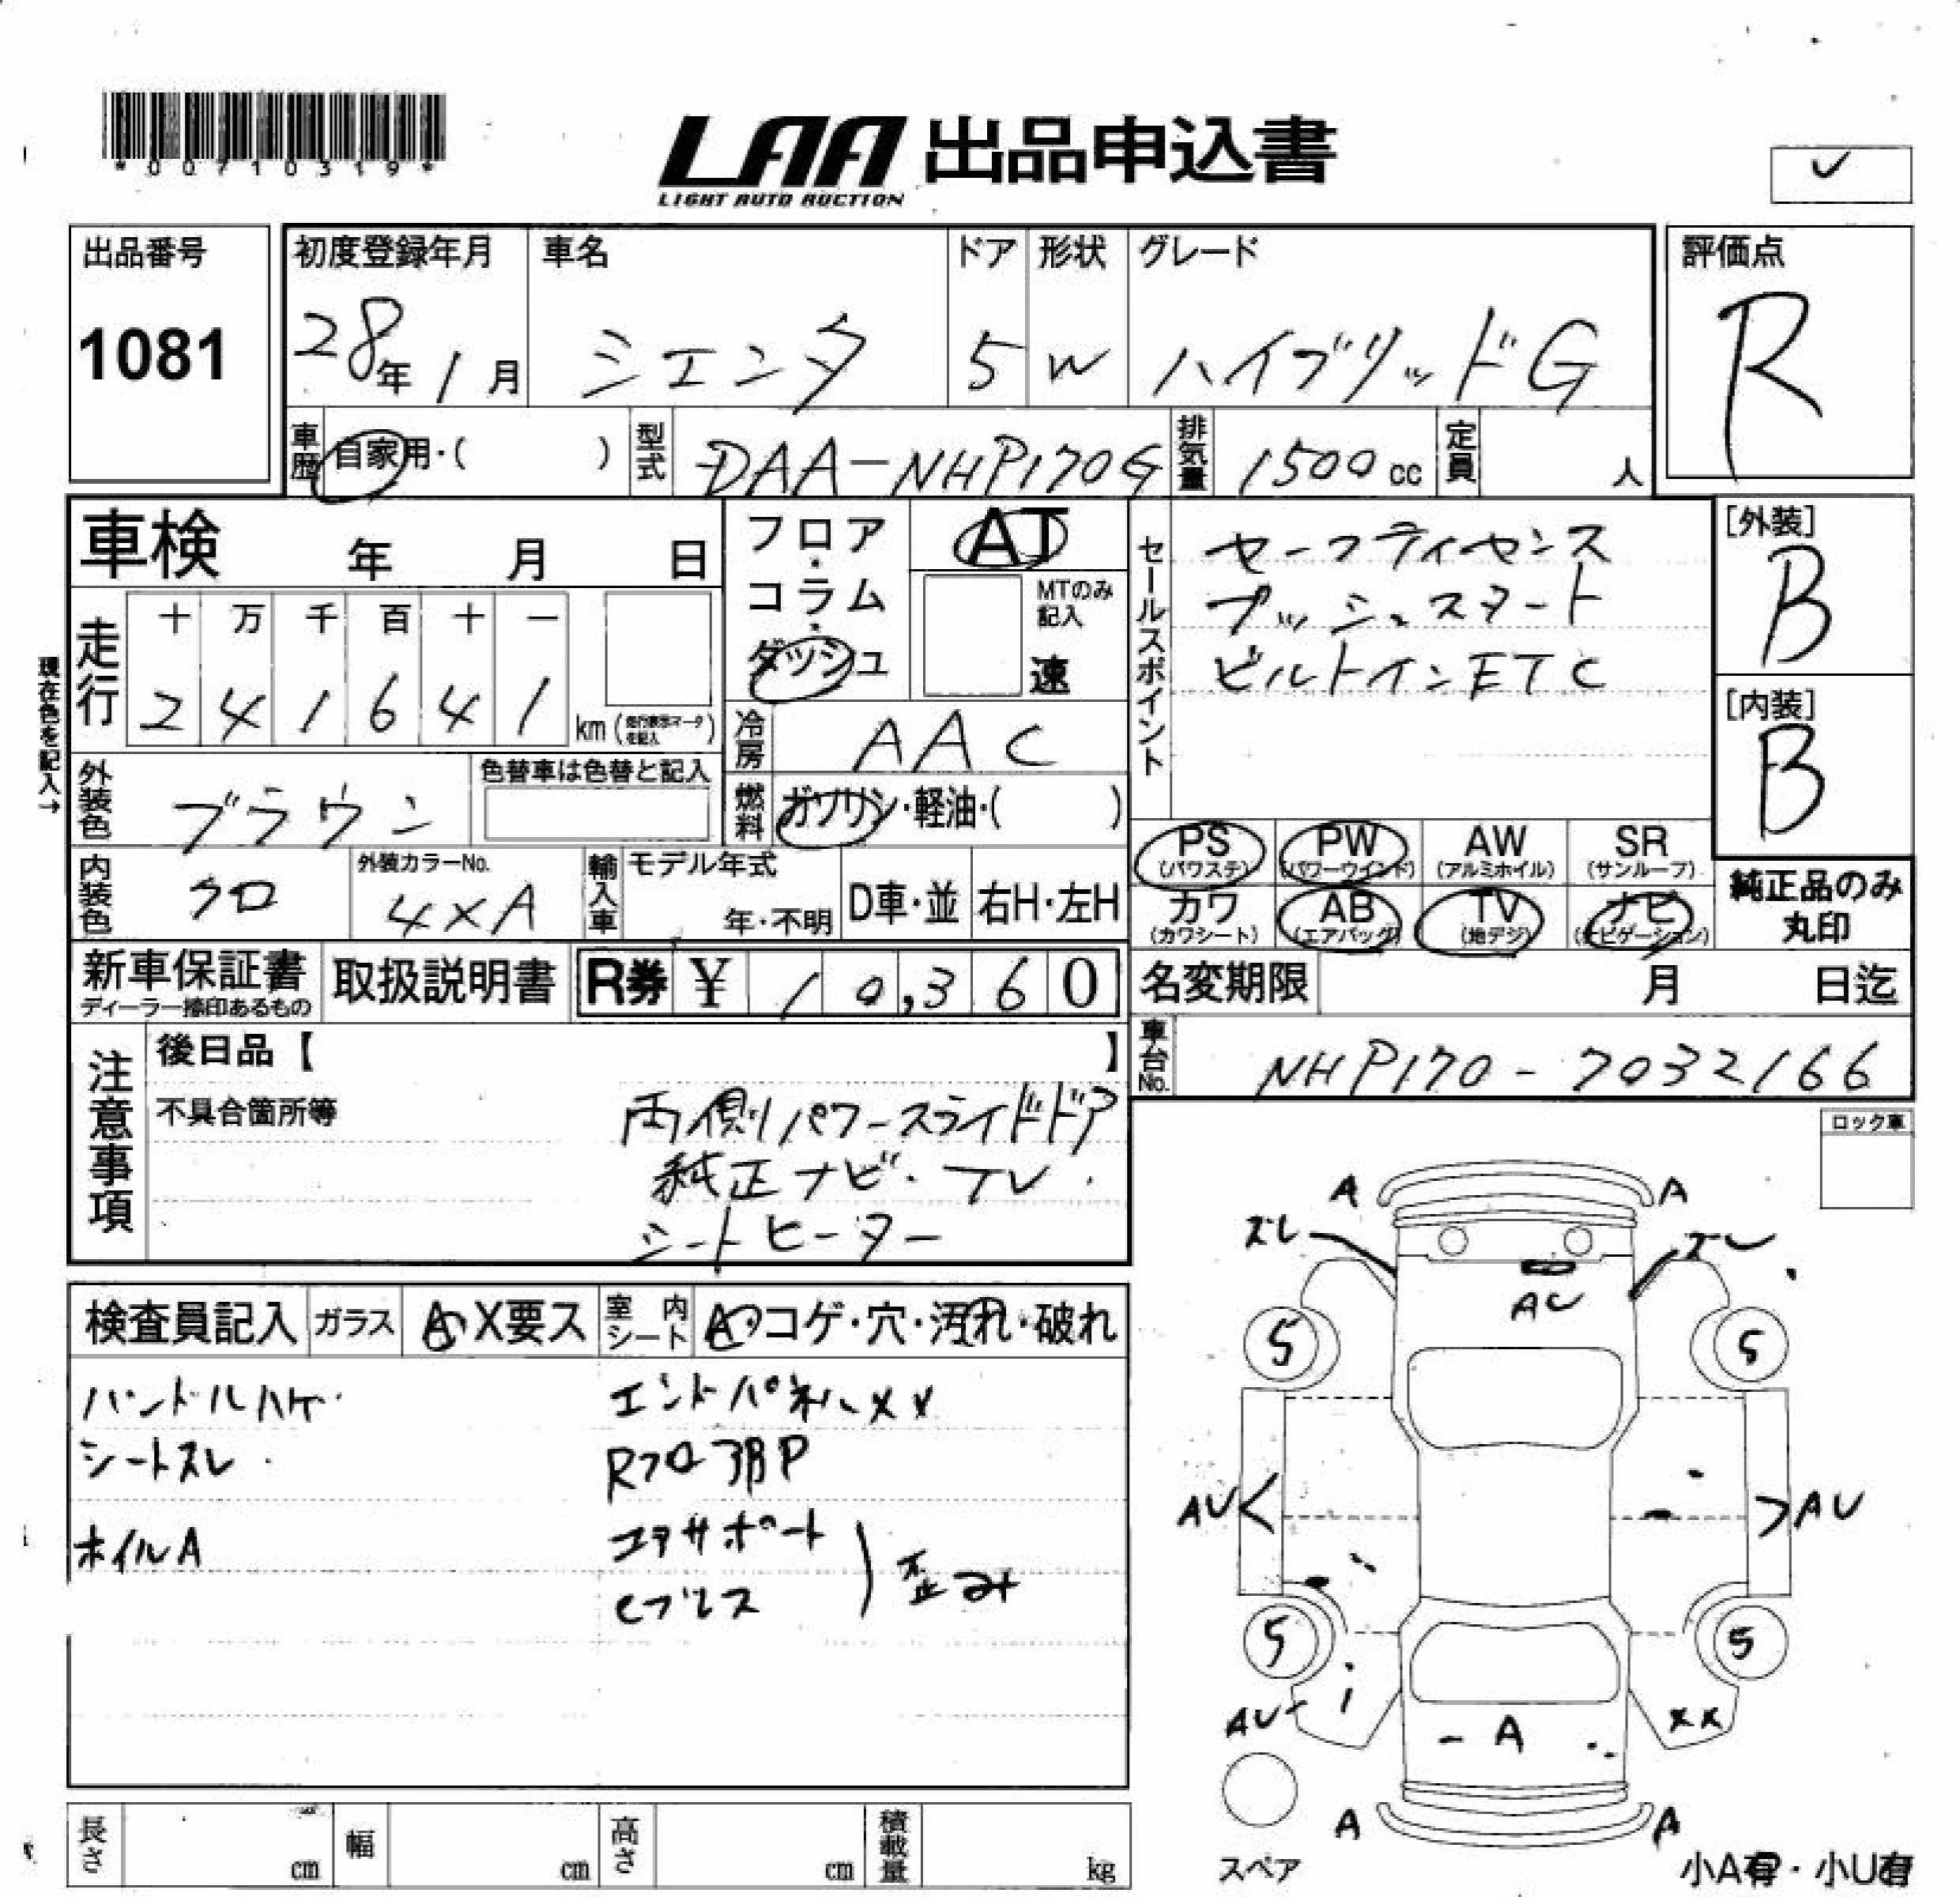 *00710319*
LAA 出品申込書
LIGHT AUTO AUCTION
✓
出品番号 1081
初度登録年月 28年1月
車名 シエンタ
ドア 5
形状 W
グレード ハイブリッドG
評価点 R
車歴 自家用・( )
型式 DAA-NHP170G
排気量 1500cc
定員 人
車検 年 月 日
フロア・コラム・ダッシュ
AT
MTのみ記入 速
セールスポイント
セーフティセンス
プッシュスタート
ビルトインETC
[外装] B
[内装] B
現在色を記入→
走行 十 万 千 百 十 一
2 4 1 6 4 1 km(走行表示マーク を記入)
冷房 AAC
外装色 ブラウン
色替車は色替と記入
燃料 ガソリン・軽油・( )
内装色 クロ
外装カラーNo. 4XA
輸入車 モデル年式 年・不明
D車・並
右H・左H
PS (パワステ)
PW (パワーウインド)
AW (アルミホイル)
SR (サンルーフ)
カワ (カワシート)
AB (エアバッグ)
TV (地デジ)
ナビ (ナビゲーション)
純正品のみ丸印
新車保証書 ディーラー捺印あるもの
取扱説明書
R券 ¥ 10,360
名変期限 月 日迄
車台No. NHP170-7032166
注意事項
後日品【 】
不具合箇所等
両側パワースライドドア
純正ナビ・TV.
シートヒーター
ロック車
検査員記入
ガラス A・X要ス
室内シート A・コゲ・穴・汚れ・破れ
ハンドルハゲ
シートスレ
ホイルA
エンドパネルXX
Rフロア P
コアサポート
Cプレス
歪み
A A
ズレ ズレ
AU
5 5
AU AU
5 5
AU XX
A
A A
スペア
小A有・小U有
長さ cm
幅 cm
高さ cm
積載量 kg